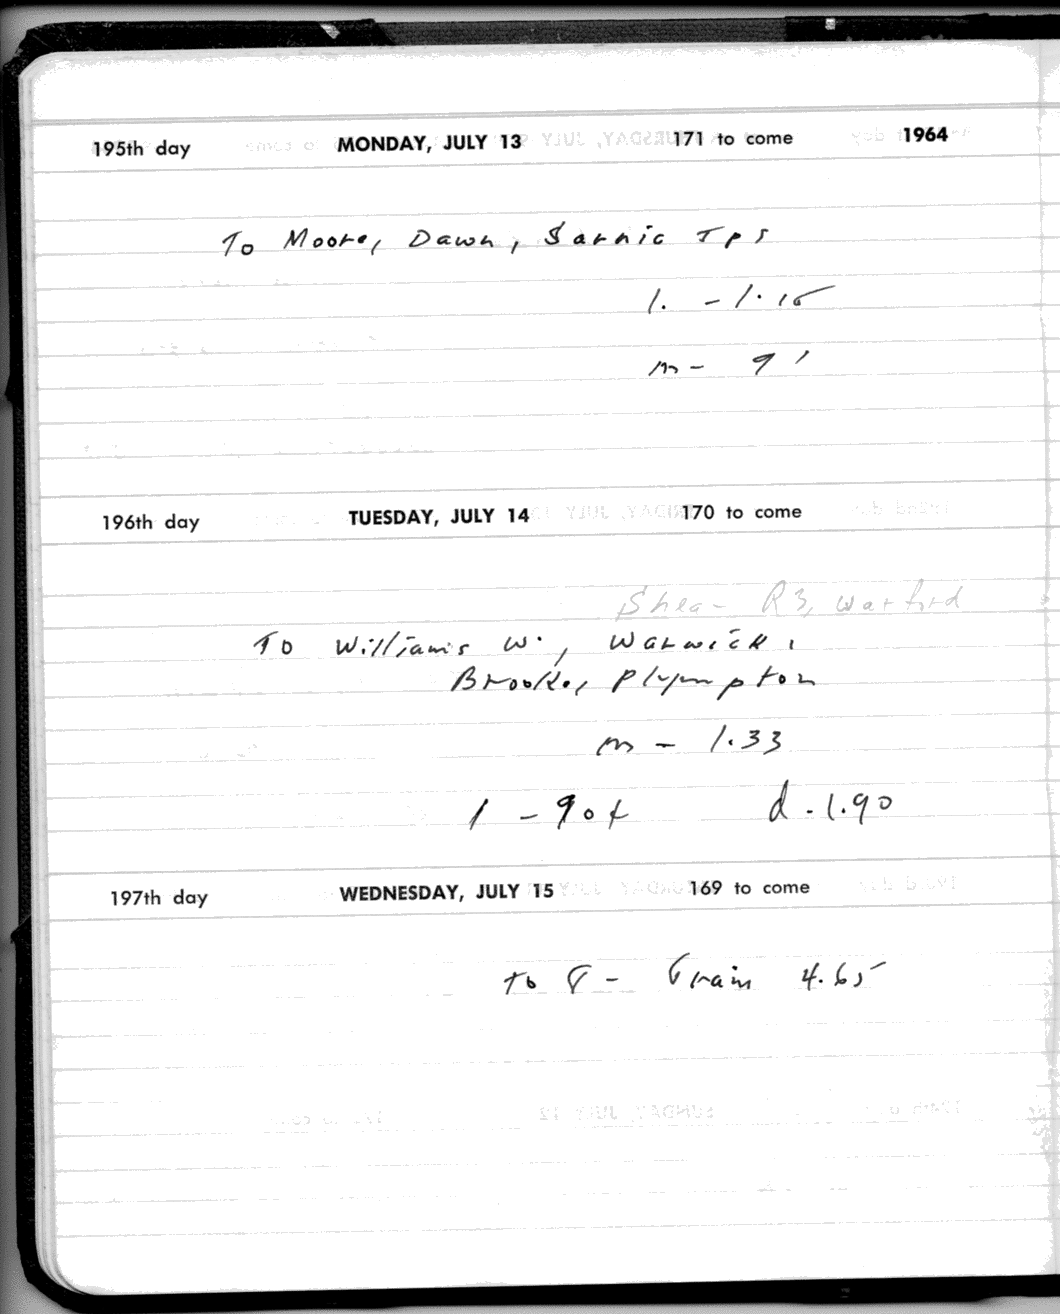 195th day MONDAY, JULY 13 171 to come 1964
To Moore, Dawn, Sarnia Tps
l. - 1.15
m - 91
196th day TUESDAY, JULY 14 170 to come
Shea - R3, Watford
To Williams W., Warwick,
Brooke, Plympton
m - 1.33
l - 90¢ d - 1.90
197th day WEDNESDAY, JULY 15 169 to come
to T - Train 4.65